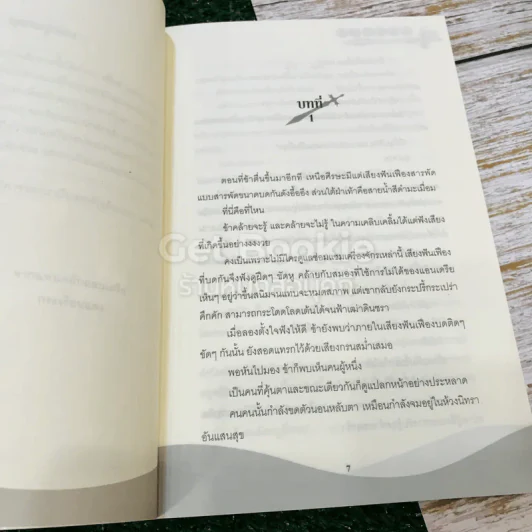 บทที่
1
ตอนที่ข้าตื่นขึ้นมาอีกที เหนือศีรษะมีแต่เสียงฟันเฟืองสารพัด
แบบสารพัดขนาดบดกันดังอื้ออึง ส่วนใต้ฝ่าเท้าคือสายน้ำสีดำมะเมื่อม
ที่นี่คือที่ไหน
ข้าคล้ายจะรู้ และคล้ายจะไม่รู้ ในความเคลิบเคลิ้มได้แต่ฟังเสียง
ที่เกิดขึ้นอย่างงงงวย
คงเป็นเพราะไม่มีใครดูแลซ่อมแซมเครื่องจักรเหล่านี้ เสียงฟันเฟือง
ที่บดกันจึงฟังดูฝืดๆ ขัดหู คล้ายกับสมองที่ใช้การไม่ได้ของแอนเดรีย
เห็นๆ อยู่ว่าขึ้นสนิมจนแทบจะหมดสภาพ แต่ขากลับยังกระปรี้กระเปร่า
คึกคัก สามารถกระโดดโลดเต้นได้จนฟ้าเฒ่าดินชรา
เมื่อลองตั้งใจฟังให้ดี ข้ายังพบว่าภายในเสียงฟันเฟืองบดติดๆ
ขัดๆ กันนั้น ยังสอดแทรกไว้ด้วยเสียงกรนสม่ำเสมอ
พอหันไปมอง ข้าก็พบเห็นคนผู้หนึ่ง
เป็นคนที่คุ้นตาและขณะเดียวกันก็ดูแปลกหน้าอย่างประหลาด
คนคนนั้นกำลังขดตัวนอนหลับตา เหมือนกำลังจมอยู่ในห้วงนิทรา
อันแสนสุข
7
Get Bookie